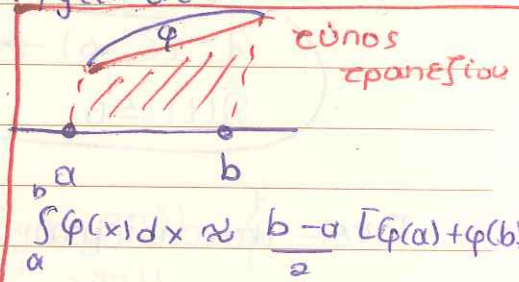 φ
τύπος
τραπεζίου
a
b
∫_a^b φ(x)dx ≈ (b-a)/2 [φ(a)+φ(b)